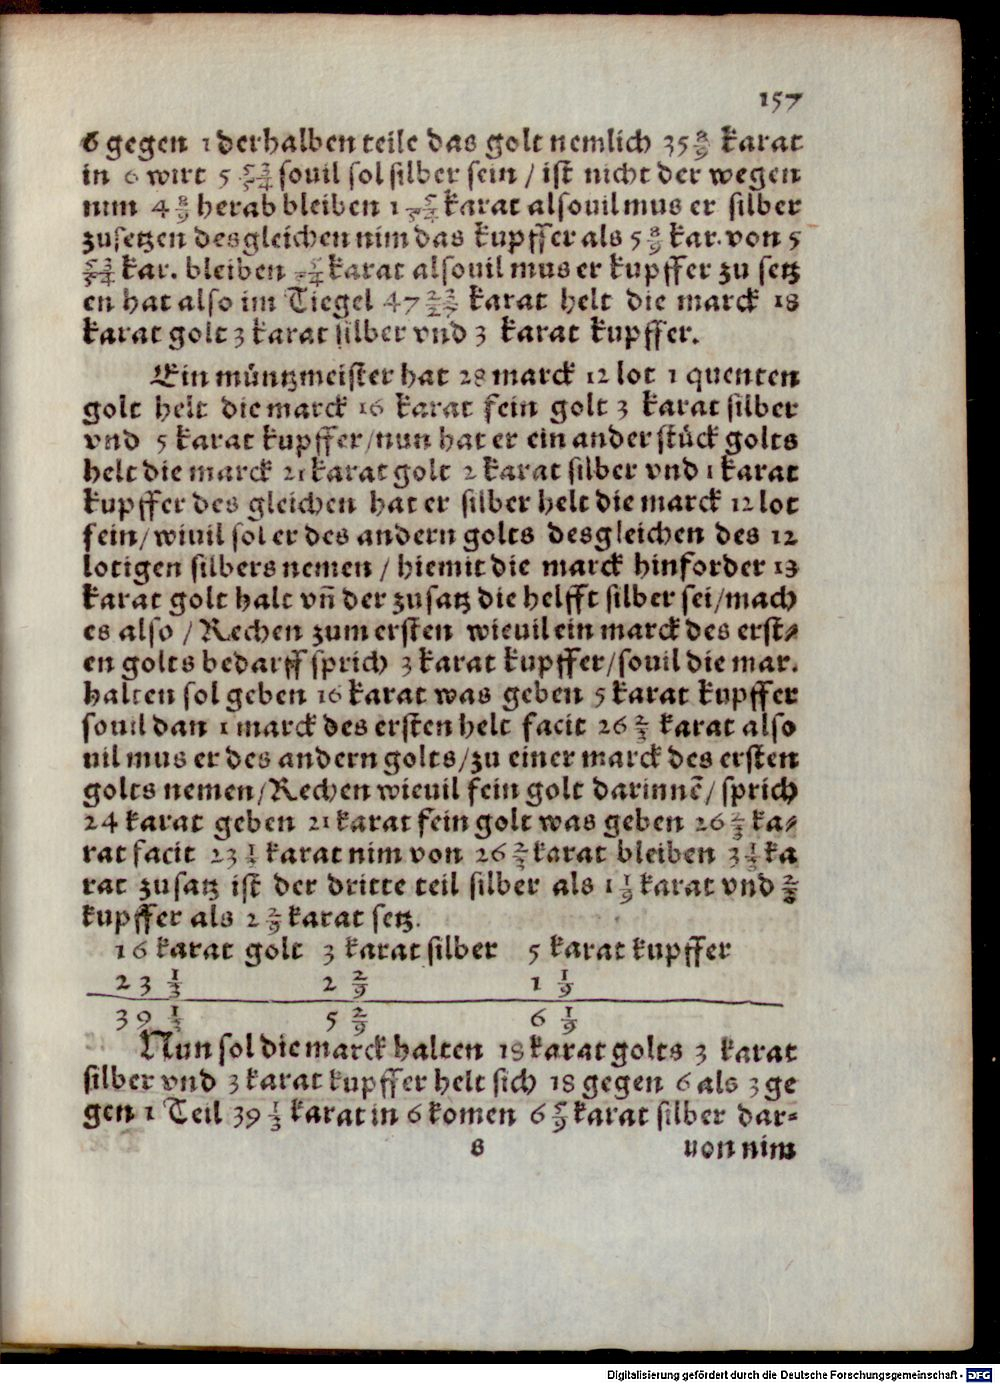 157
6 gegen 1 derhalben teile das golt nemlich 35 8/9 karat
in 6 wirt 5 53/54 souil sol silber sein / ist nicht der wegen
nim 4 8/9 herab bleiben 1 5/54 karat alsouil mus er silber
zusetzen desgleichen nim das kupffer als 5 8/9 kar. von 5
53/54 kar. bleiben 5/54 karat alsouil mus er kupffer zu setz
en hat also im Tiegel 47 22/27 karat helt die marck 18
karat golt 3 karat silber vnd 3 karat kupffer.
Ein müntzmeister hat 28 marck 12 lot 1 quenten
golt helt die marck 16 karat fein golt 3 karat silber
vnd 5 karat kupffer/nun hat er ein ander stück golts
helt die marck 21 karat golt 2 karat silber vnd 1 karat
kupffer des gleichen hat er silber helt die marck 12 lot
fein/wiuil sol er des andern golts desgleichen des 12
lotigen silbers nemen / hiemit die marck hinforder 18
karat golt halt vn̄ der zusatz die helfft silber sei/mach
es also / Rechen zum ersten wieuil ein marck des erst⸗
en golts bedarff sprich 3 karat kupffer/souil die mar.
halten sol geben 16 karat was geben 5 karat kupffer
souil dan 1 marck des ersten helt facit 26 2/3 karat also
uil mus er des andern golts/zu einer marck des ersten
golts nemen/Rechen wieuil fein golt darinnē/ sprich
24 karat geben 21 karat fein golt was geben 26 2/3 ka⸗
rat facit 23 1/3 karat nim von 26 2/3 karat bleiben 3 1/3 ka
rat zusatz ist der dritte teil silber als 1 1/9 karat vnd 2/3
kupffer als 2 2/9 karat setz.
16 karat golt 3 karat silber 5 karat kupffer
23 1/3 2 2/9 1 1/9
39 1/3 5 2/9 6 1/9
Nun sol die marck halten 18 karat golts 3 karat
silber vnd 3 karat kupffer helt sich 18 gegen 6 als 3 ge
gen 1 Teil 39 1/3 karat in 6 komen 6 5/9 karat silber dar⸗
s von nim
Digitalisierung gefördert durch die Deutsche Forschungsgemeinschaft - DFG